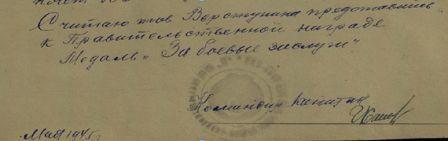 Считаю тов Ворстукина представлению
к Правительственной награде
Медаль "За боевые заслуги"
Командир капитан
Мая 1945г